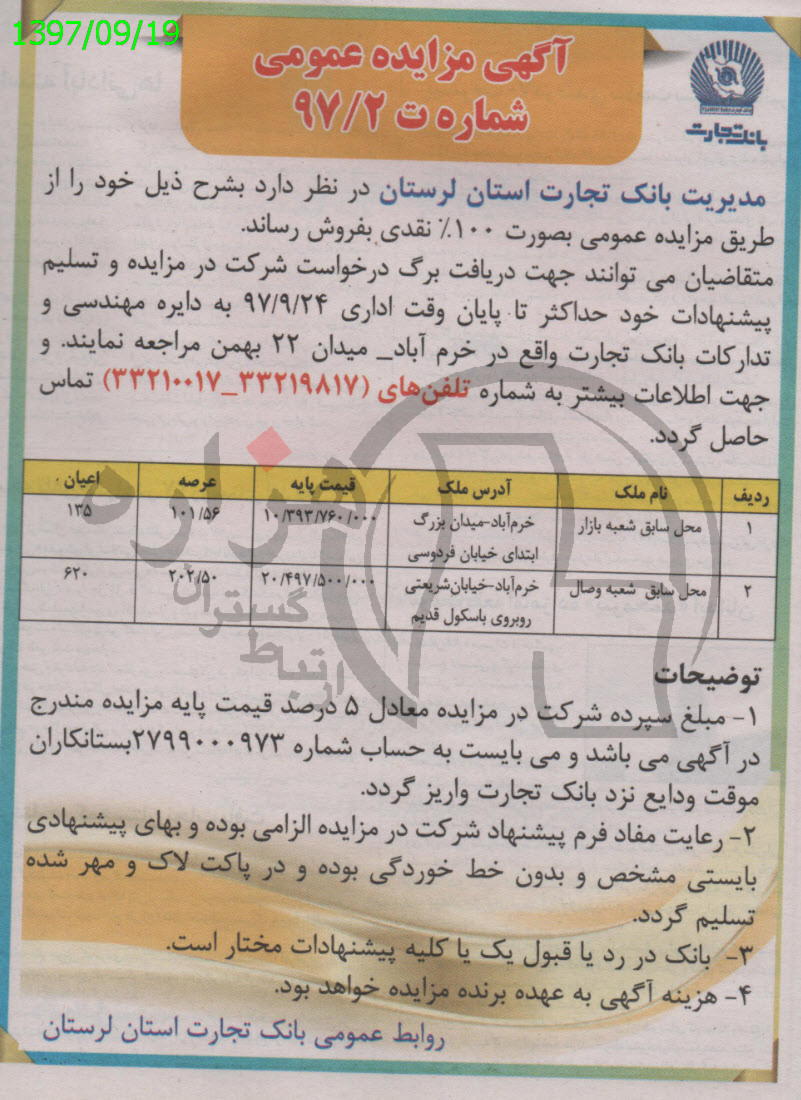 1397/09/19
آگهی مزایده عمومی
شماره ت ۹۷/۲
بانک تجارت
مدیریت بانک تجارت استان لرستان در نظر دارد بشرح ذیل خود را از
طریق مزایده عمومی بصورت ۱۰۰٪ نقدی بفروش رساند.
متقاضیان می توانند جهت دریافت برگ درخواست شرکت در مزایده و تسلیم
پیشنهادات خود حداکثر تا پایان وقت اداری ۹۷/۹/۲۴ به دایره مهندسی و
تدارکات بانک تجارت واقع در خرم آباد_ میدان ۲۲ بهمن مراجعه نمایند. و
جهت اطلاعات بیشتر به شماره تلفن‌های (۳۳۲۱۹۸۱۷_۳۳۲۱۰۰۱۷) تماس
حاصل گردد.
ردیف نام ملک آدرس ملک قیمت پایه عرصه اعیان
۱ محل سابق شعبه بازار خرم‌آباد-میدان بزرگ ۱۰/۳۹۳/۷۶۰/۰۰۰ ۱۰۱/۵۶ ۱۳۵
ابتدای خیابان فردوسی
۲ محل سابق شعبه وصال خرم‌آباد-خیابان‌شریعتی ۲۰/۴۹۷/۵۰۰/۰۰۰ ۲۰۲/۵۰ ۶۲۰
روبروی باسکول قدیم
هزاره
گستران
ارتباط
توضیحات
۱- مبلغ سپرده شرکت در مزایده معادل ۵ درصد قیمت پایه مزایده مندرج
در آگهی می باشد و می بایست به حساب شماره ۲۷۹۹۰۰۰۹۷۳بستانکاران
موقت ودایع نزد بانک تجارت واریز گردد.
۲- رعایت مفاد فرم پیشنهاد شرکت در مزایده الزامی بوده و بهای پیشنهادی
بایستی مشخص و بدون خط خوردگی بوده و در پاکت لاک و مهر شده
تسلیم گردد.
۳- بانک در رد یا قبول یک یا کلیه پیشنهادات مختار است.
۴- هزینه آگهی به عهده برنده مزایده خواهد بود.
روابط عمومی بانک تجارت استان لرستان